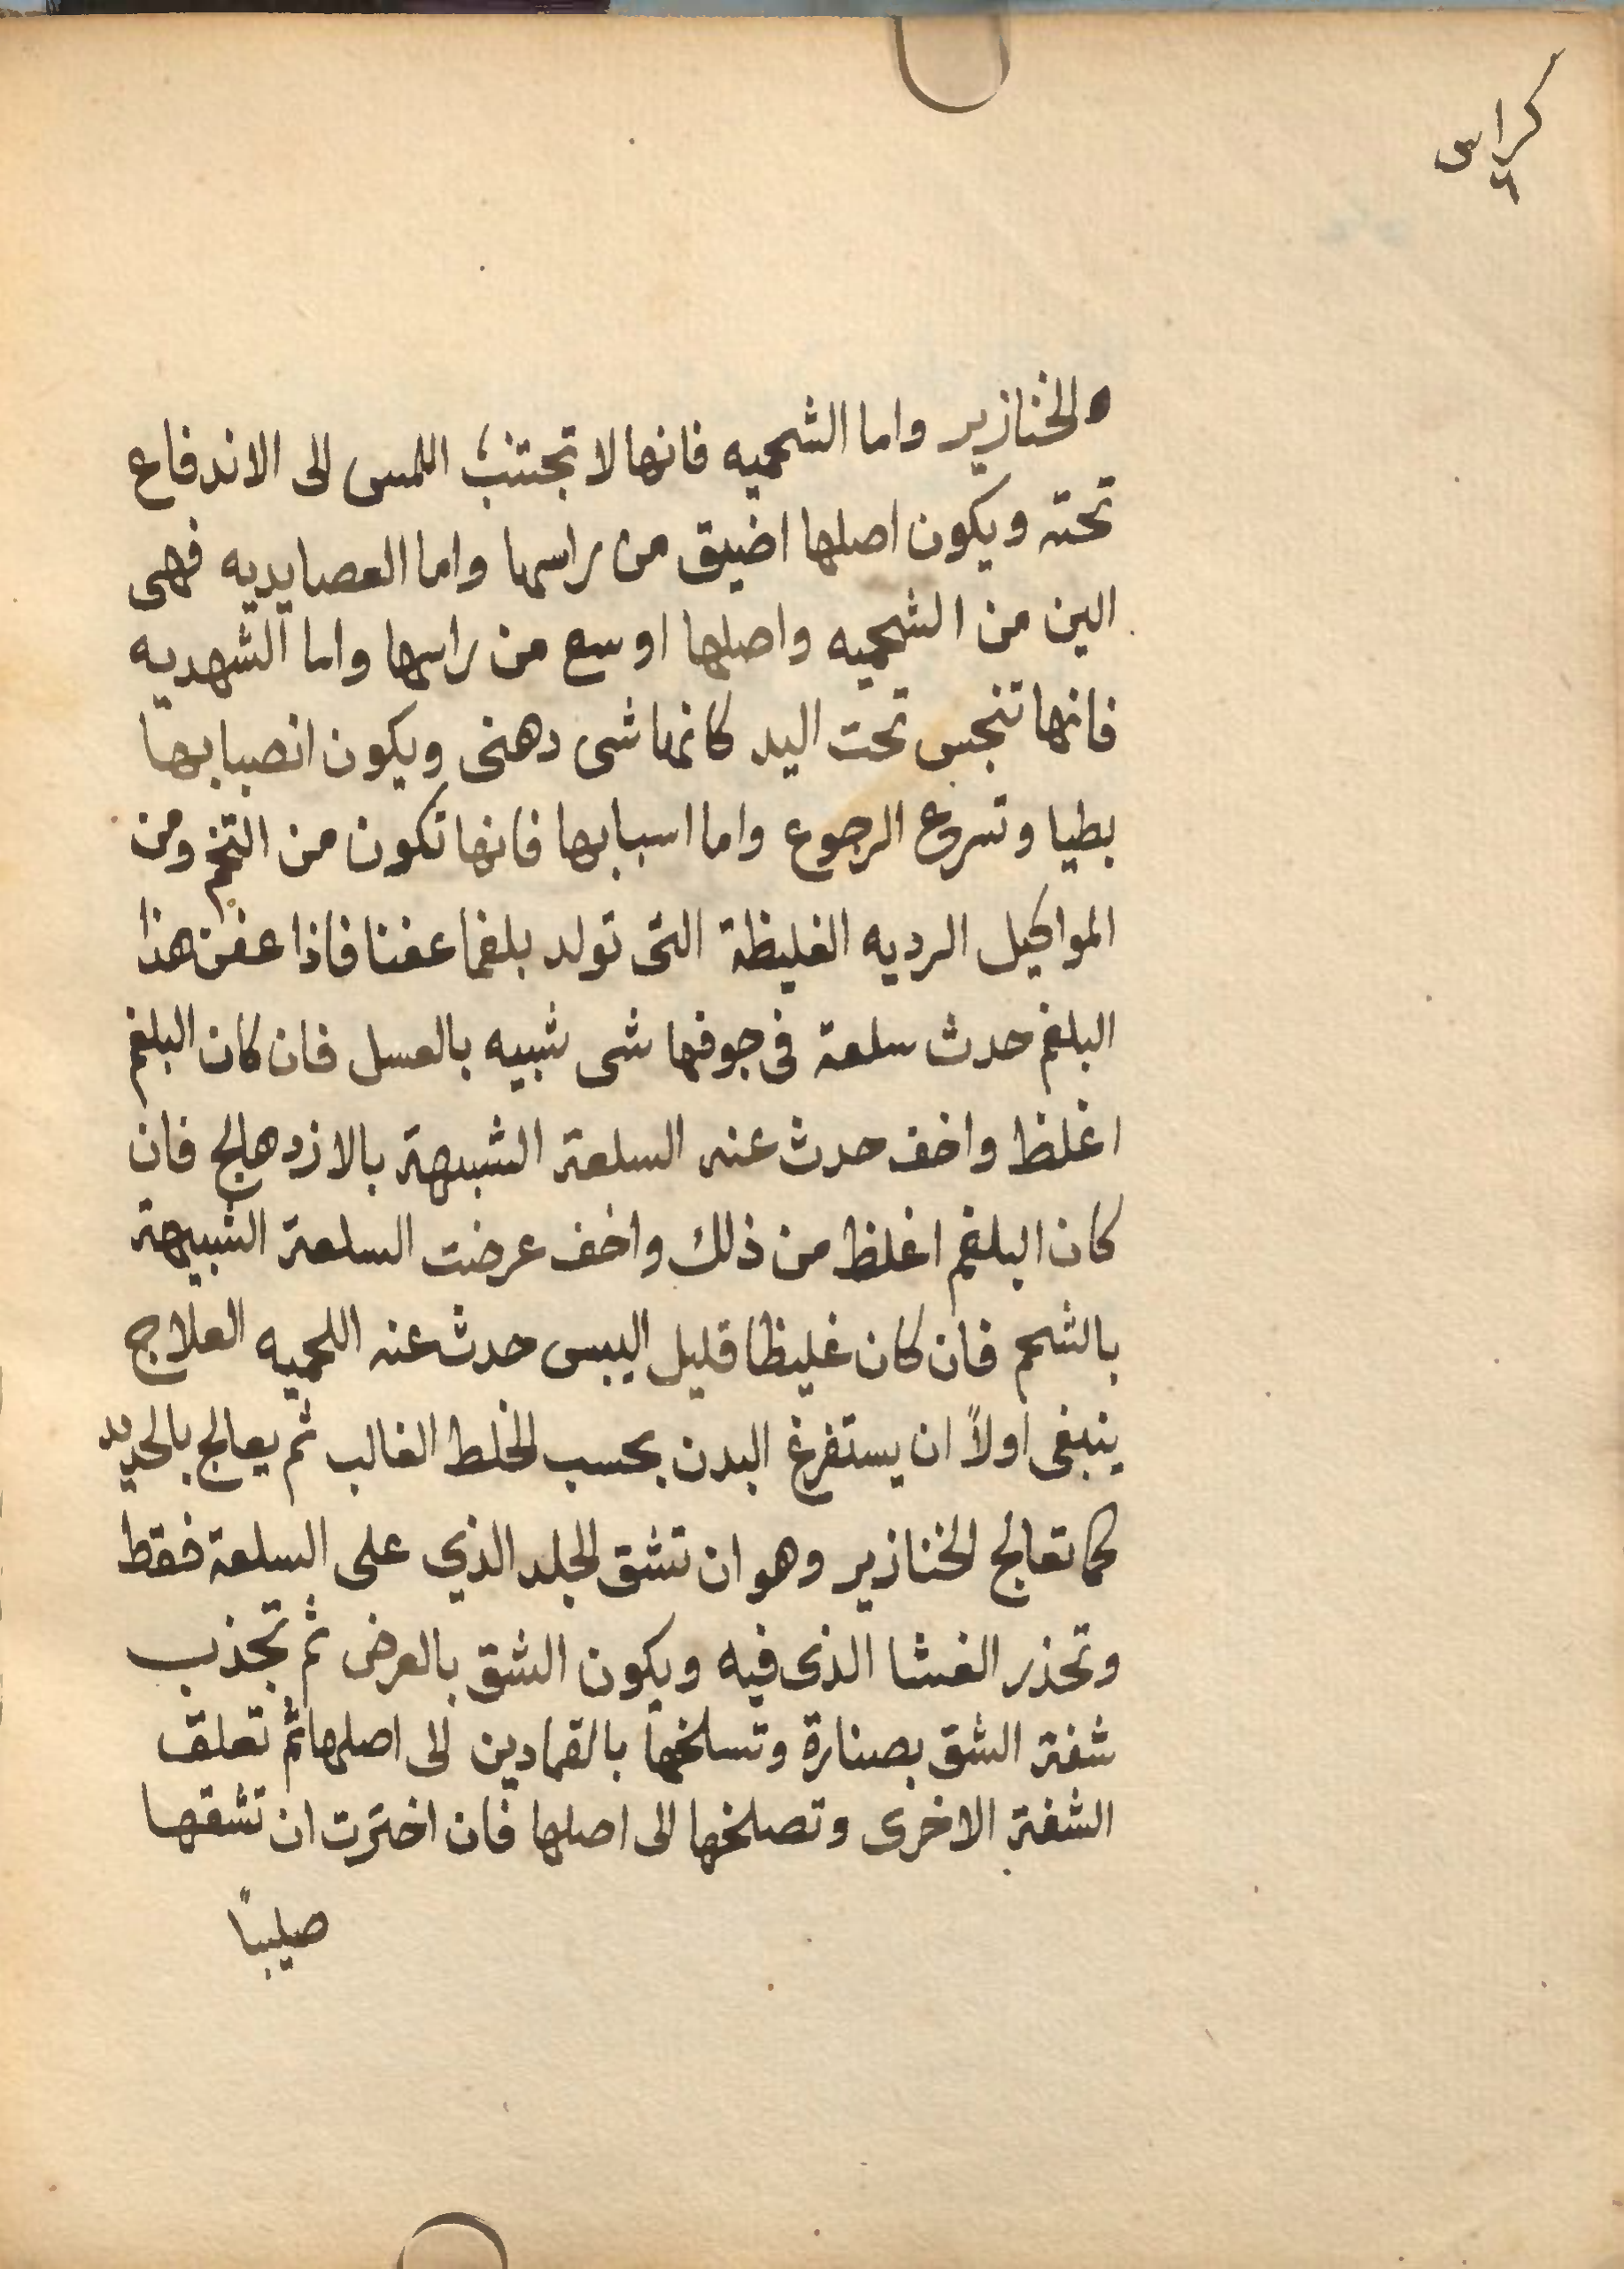 كراس
٦
الخنازير واما الشحميه فانها لا تجتنب اللمس الى الاندفاع
تحته ويكون اصلها اضيق من راسها واما العصايديه فهى
الين من الشحميه واصلها اوسع من راسها واما الشهديه
فانها تنجس تحت اليد كانها شى دهنى ويكون انصبابها
بطيا وتسروع الرجوع واما اسبابها فانها تكون من التخم ومن
المواكيل الرديه الغليظة التى تولد بلغما عفنا فاذا عفن هذا
البلغم حدث سلعة فى جوفها شى شبيه بالعسل فان كان البلغم
اغلظ واخف حدث عنه السلعة الشبيهة بالازدهالج فان
كان البلغم اغلظ من ذلك واخف عرضت السلعة الشبيهة
بالشحم فان كان غليظا قليل اليبس حدث عنه اللحميه العلاج
ينبغى اولاً ان يستفرغ البدن بحسب الخلط الغالب ثم يعالج بالحديد
كما تعالج الخنازير وهو ان تشق الجلد الذي على السلعة فقط
وتحذر الغشا الذى فيه ويكون الشق بالعرض ثم تجذب
شفة الشق بصنارة وتسلخها بالقمادين الى اصلها ثم تعلق
الشفة الاخرى وتصلخها الى اصلها فان اخترت ان تشقها
صليبًا